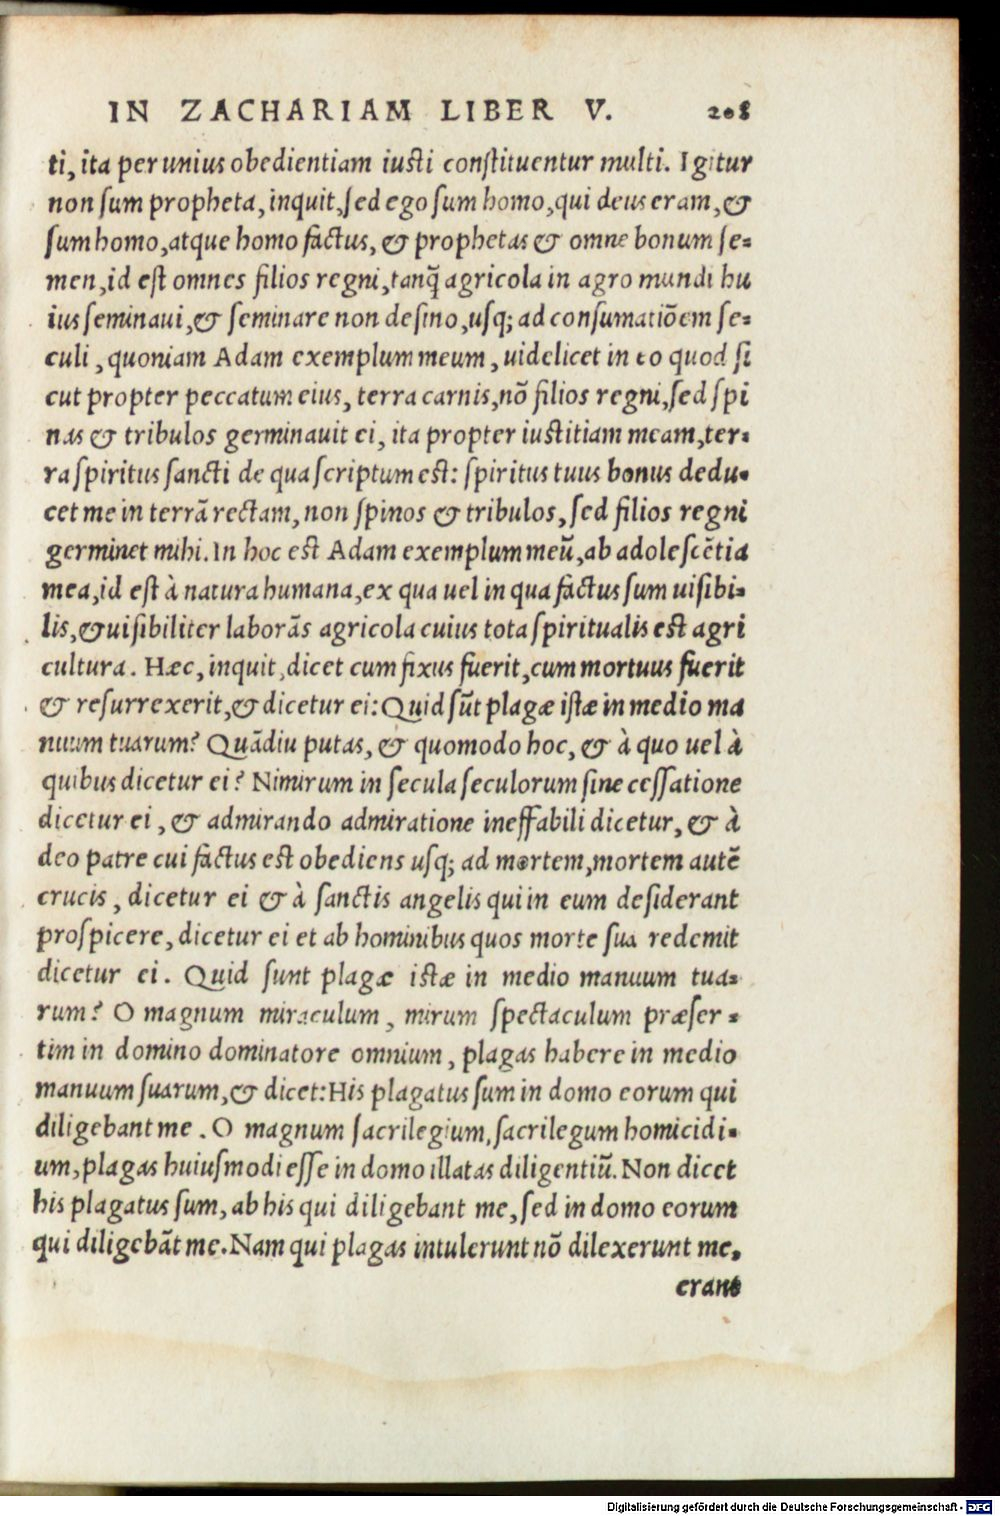 IN ZACHARIAM LIBER V. 208
ti, ita per unius obedientiam iusti conſtituentur multi. Igitur
non ſum propheta, inquit, ſed ego ſum homo, qui deus eram, &
ſum homo, atque homo factus, & prophetas & omne bonum ſe-
men, id eſt omnes filios regni, tanq̃ agricola in agro mundi hu
ius ſeminaui, & ſeminare non deſino, uſq; ad conſumatiõem ſe-
culi, quoniam Adam exemplum meum, uidelicet in eo quod ſi
cut propter peccatum eius, terra carnis, nõ filios regni, ſed ſpi
nas & tribulos germinauit ei, ita propter iuſtitiam meam, ter-
ra ſpiritus ſancti de qua ſcriptum eſt: ſpiritus tuus bonus dedu-
cet me in terrã rectam, non ſpinos & tribulos, ſed filios regni
germinet mihi. In hoc eſt Adam exemplum meũ, ab adoleſcẽtia
mea, id eſt à natura humana, ex qua uel in qua factus ſum uiſibi-
lis, & uiſibiliter laborãs agricola cuius tota ſpiritualis eſt agri
cultura. Hæc, inquit, dicet cum fixus fuerit, cum mortuus fuerit
& reſurrexerit, & dicetur ei: Quid ſũt plagæ iſtæ in medio ma
nuum tuarum? Quãdiu putas, & quomodo hoc, & à quo uel à
quibus dicetur ei? Nimirum in ſecula ſeculorum ſine ceſſatione
dicetur ei, & admirando admiratione ineffabili dicetur, & à
deo patre cui factus eſt obediens uſq; ad mortem, mortem autẽ
crucis, dicetur ei & à ſanctis angelis qui in eum deſiderant
proſpicere, dicetur ei et ab hominibus quos morte ſua redemit
dicetur ei. Quid ſunt plagæ iſtæ in medio manuum tua-
rum? O magnum miraculum, mirum ſpectaculum præſer-
tim in domino dominatore omnium, plagas habere in medio
manuum ſuarum, & dicet: His plagatus ſum in domo eorum qui
diligebant me. O magnum ſacrilegium, ſacrilegum homicidi-
um, plagas huiuſmodi eſſe in domo illatas diligentiũ. Non dicet
his plagatus ſum, ab his qui diligebant me, ſed in domo eorum
qui diligebãt me. Nam qui plagas intulerunt nõ dilexerunt me,
erant
Digitalisierung gefördert durch die Deutsche Forschungsgemeinschaft - DFG